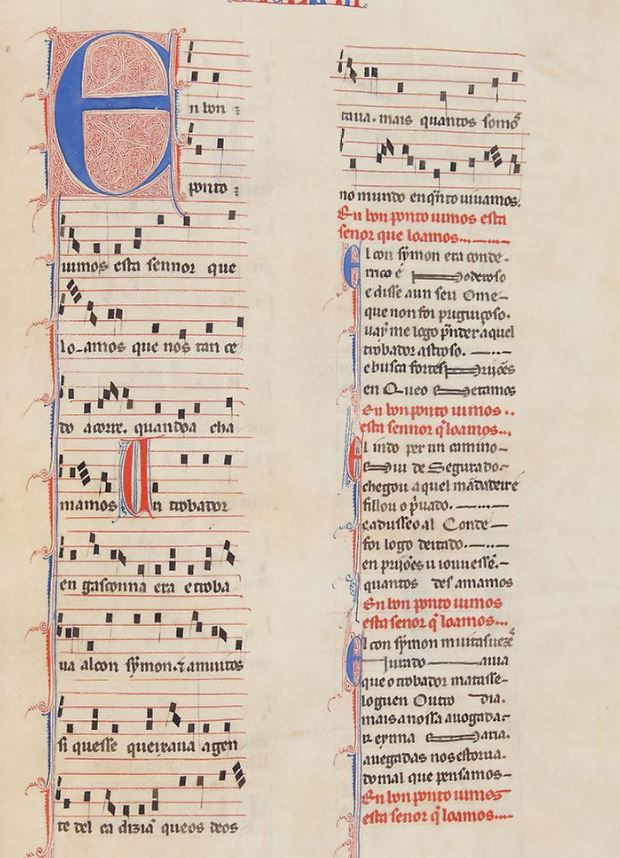 En bon
ponto
uimos esta sennor que
lo-amos que nos tan ce
do acorre. quandoa cha
mamos Un trobador
en gasconna era etroba
ua alcon symon. & amuitos
si quesse queixaua agen
te del ca dizia queos deos
taua. mais quantos somos
no mundo enqnto uiuamos.
En bon ponto uimos esta
senor que loamos
El con symon era conde
rrico e Poderoso
e disse aun seu Ome
que non foi piguiçoso.
uay me logo prender aquel
trobador astroso.
e busca fortes Prijões
en Queo Metamos
En bon ponto uimos
esta senor q loamos
El indo per un camino
chegou aquel mandadeire
fillou o priuado.
eadusseo al Conde
foi logo deitado.
en prijões u iouuesse
quantos desamamos
En bon ponto uimos
esta senor q loamos
El con symon muitasuezes
Iurado aua
que o trobador matasse
loguen Outro dia.
mais a nossa auogada
Reynna
auegadas nos estoria.
do mal que pensamos
En bon ponto uimos
esta senor q loamos